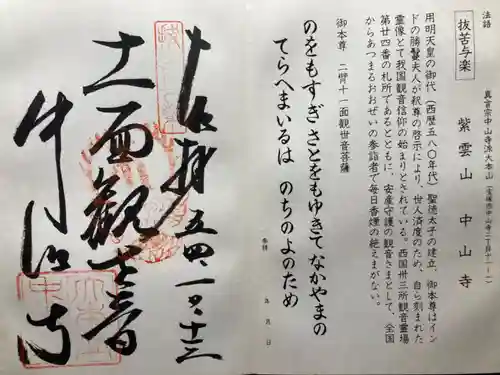 法語
抜苦与楽
真言宗中山寺派大本山
紫雲山 中山寺
用明天皇の御代(西暦五八〇年代)聖徳太子の建立、御本尊はイン
ドの勝鬘夫人が釈尊の啓示により、世人済度のため、自ら刻まれた
霊像とて我国観音信仰の始まりとされている。西国卅三所観音霊場
第廿四番の札所であるとともに、安産守護の観音さまとして、全国
からあつまるおおぜいの参詣者で毎日香煙の絶えまがない。
御本尊 二臂十一面観世音菩薩
のをもすぎ さとをもゆきて なかやまの
てらへまいるは のちのよのため
年 月 日
五四、一〇、十三
十一面観世音
中山寺